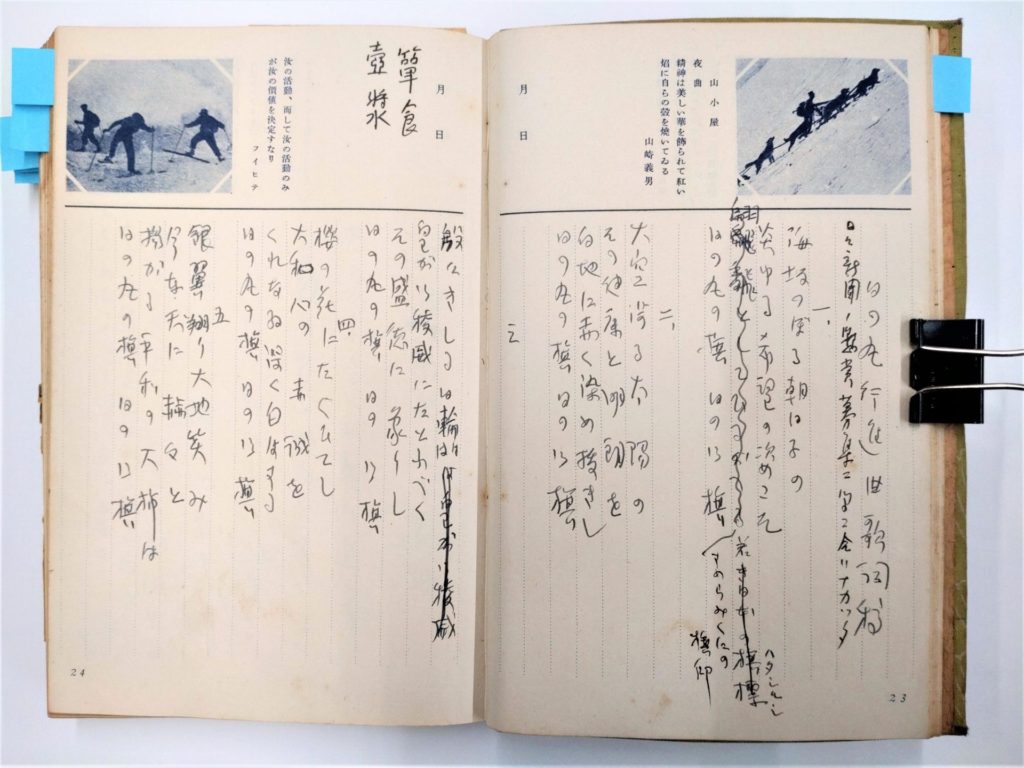 山小屋
夜曲
精神は美しい華を飾られて紅い
焰に自らの殻を焼いてゐる
山崎義男
月 日
日の丸行進曲歌詞
日々新聞ノ懸賞募集ニ間ニ合ハナカッタ
一、
海坂の 朝日子の
炎ゆる希望の
日の丸の旗 日の丸旗
ハタジルシ
すめらみくにの
旗印
二、
大空渡る太陽の
その健康と明朗を
白地に赤く染め抜きし
日の丸の旗 日の丸旗
三
23
月 日
簞食
壺漿
汝の活動、而して汝の活動のみ
が汝の価値を決定すなり
フイヒテ
殷々きしる日輪は
皇が稜威にたとふべく
その盛徳に象りし
日の丸の旗 日の丸旗
四、
櫻の花にたぐひてし
大和心の赤誠を
くれなゐ深く白
日の丸の旗 日の丸旗
五
銀翼翔り大地笑み
今 天に輪々と
揚がる平和の大
日の丸の旗 日の丸旗
24